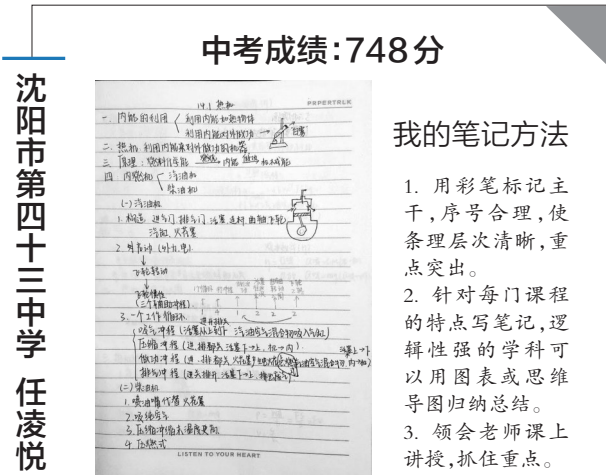 中考成绩:748分
沈阳市第四十三中学 任凌悦
PAPERTALK
14.1 热机
一. 内能的利用
利用内能加热物体
利用内能对外做功
二. 热机: 利用内能来对外做功的机器
三. 原理: 燃料化学能 燃烧 内能 做功 机械能
四. 内燃机
汽油机
柴油机
(一) 汽油机
1. 构造: 进气门 排气门 活塞 连杆 曲轴 飞轮
汽缸、火花塞
2.
飞轮转动
飞轮惯性
(三个辅助冲程)
3. 一个工作循环
吸气冲程
压缩冲程
做功冲程
排气冲程
(二) 柴油机
1. 喷油嘴代替火花塞
2. 吸纯空气
3. 压缩冲程末温度更高
4. 压燃式
LISTEN TO YOUR HEART
我的笔记方法
1. 用彩笔标记主
干,序号合理,使
条理层次清晰,重
点突出。
2. 针对每门课程
的特点写笔记,逻
辑性强的学科可
以用图表或思维
导图归纳总结。
3. 领会老师课上
讲授,抓住重点。